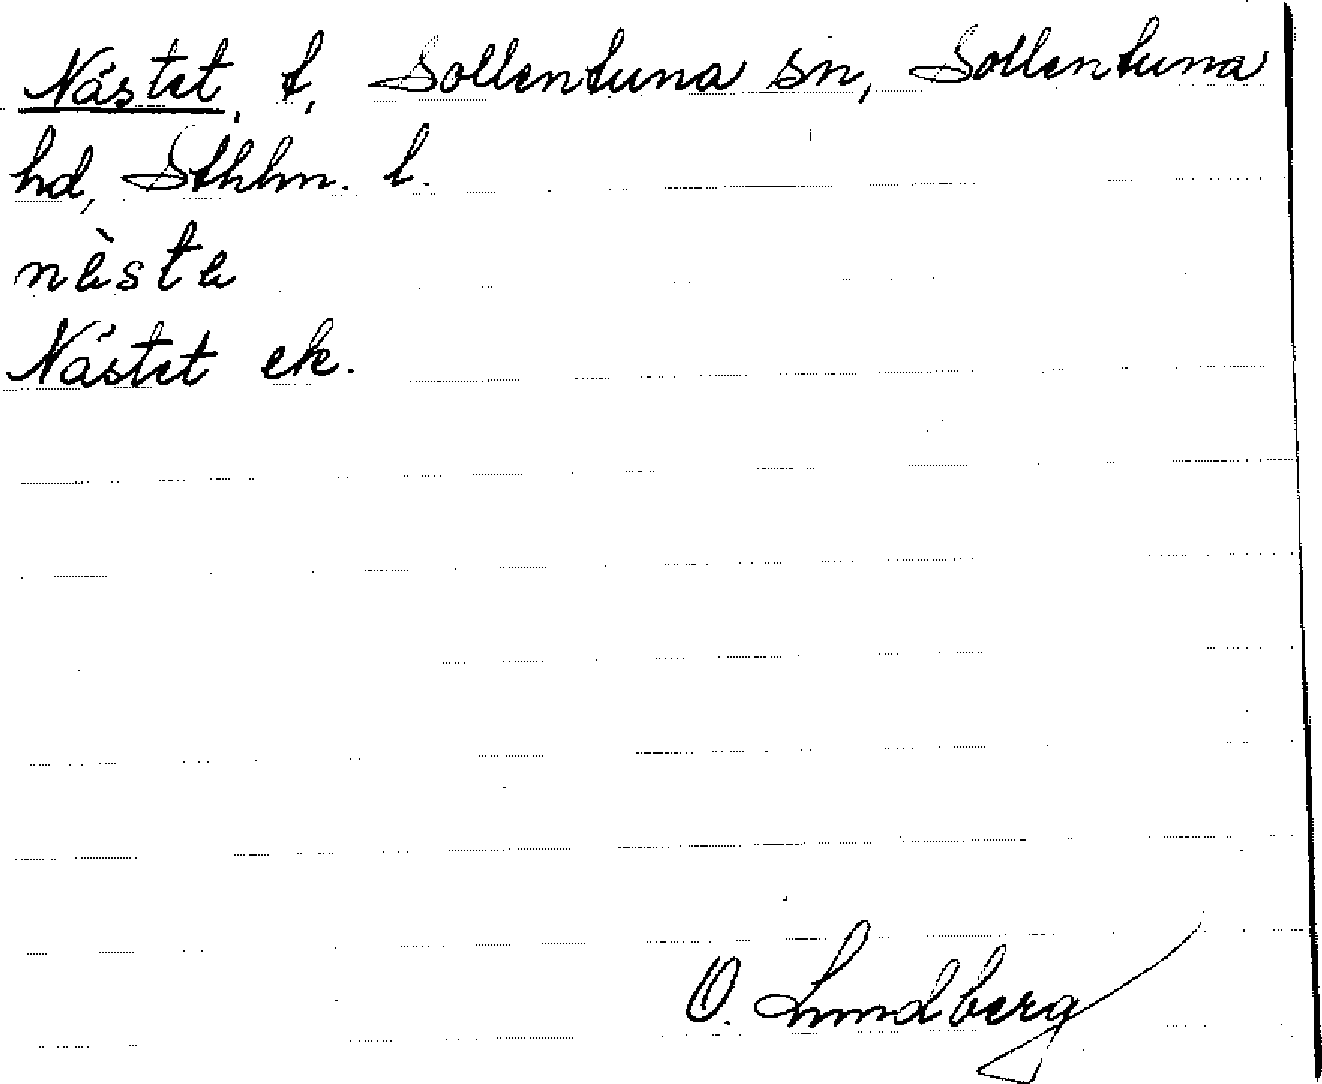 Nästet, t, Sollentuna sn, Sollentuna
hd, Sthlm. l.
nä̀stä
Nästet ek.
O. Lundberg